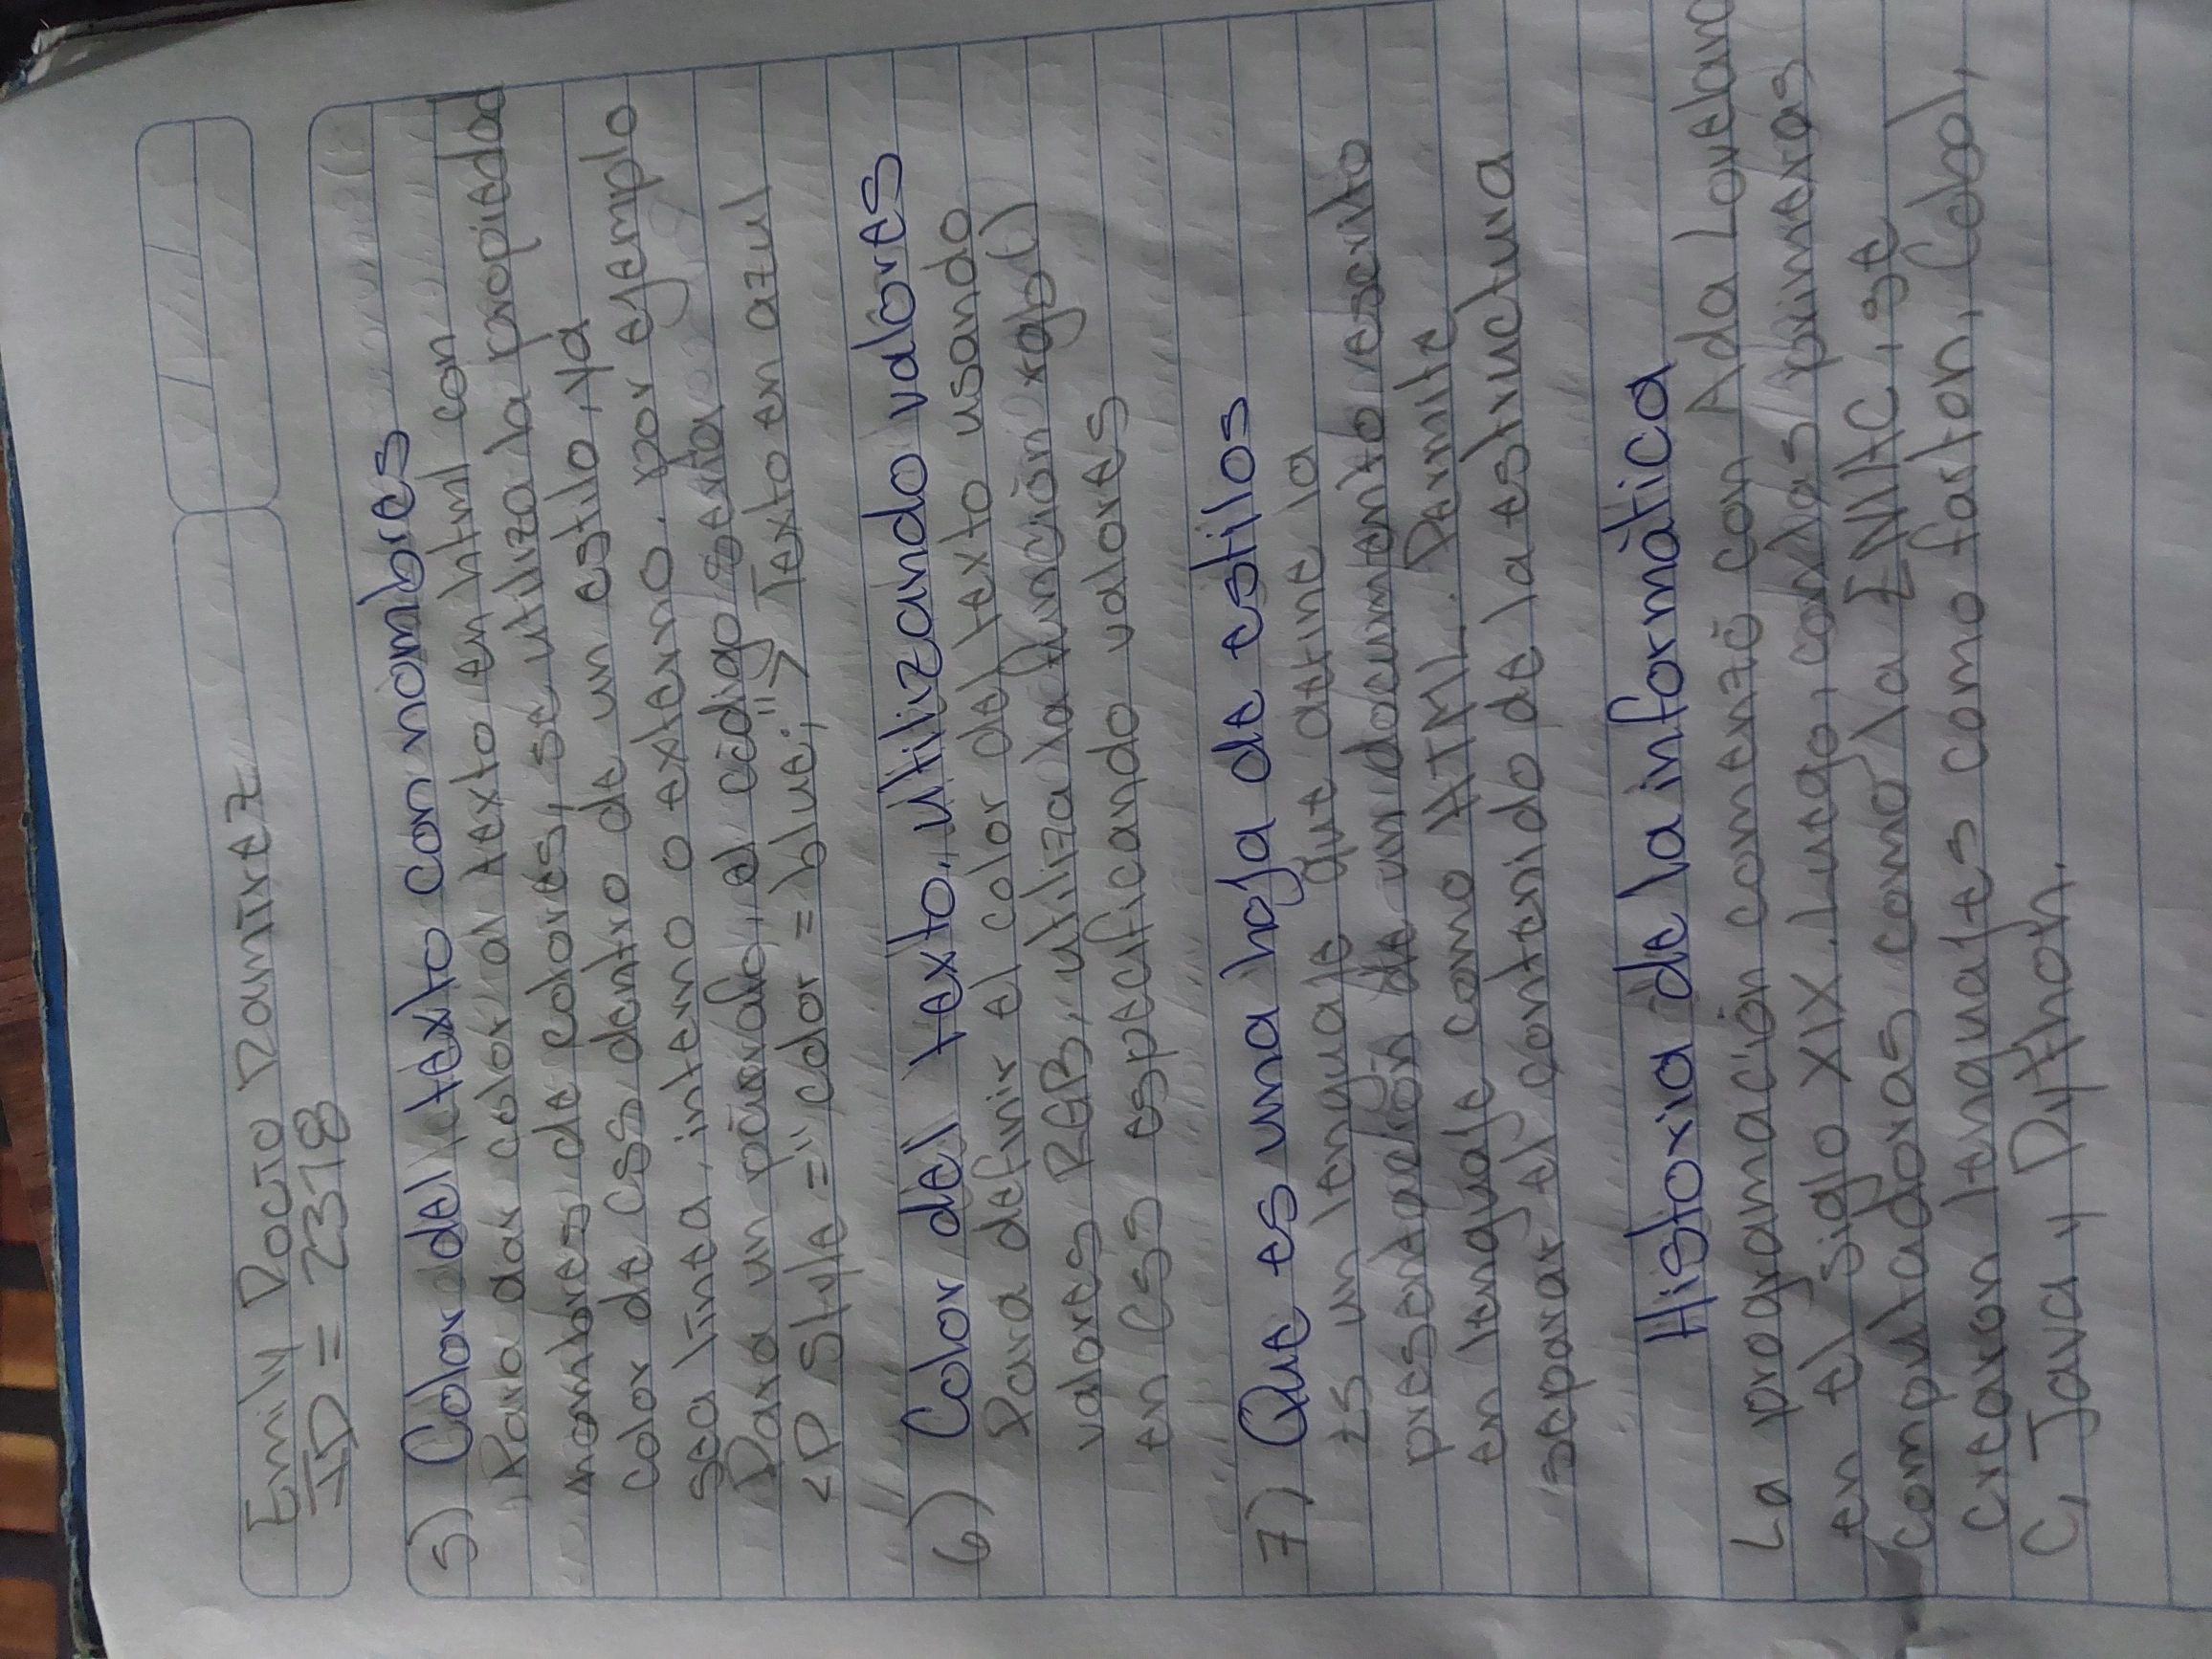 Emily Rocío Ramírez
ID = 2318
5) Color del texto con nombres
Para dar color al texto en html con
nombres de colores, se utiliza la propiedad
color de css dentro de un estilo, ya
sea línea, interno o externo. por ejemplo
Para un párrafo, el código sería
<P Style ="color = blue;"> Texto en azul
6) Color del texto, utilizando valores
Para definir el color del texto usando
valores RGB, utiliza la función rgb()
en css especificando valores
7) Que es una hoja de estilos
Es un lenguaje que define la
presentación de un documento escrito
en lenguaje como HTML. Permite
separar el contenido de la estructura
Historia de la informática
La programación comenzó con Ada Lovelane
en el siglo XIX. Luego, con las primeras
computadoras como la ENIAC, se
crearon lenguajes como forton, Cobol,
C, Java y Python.